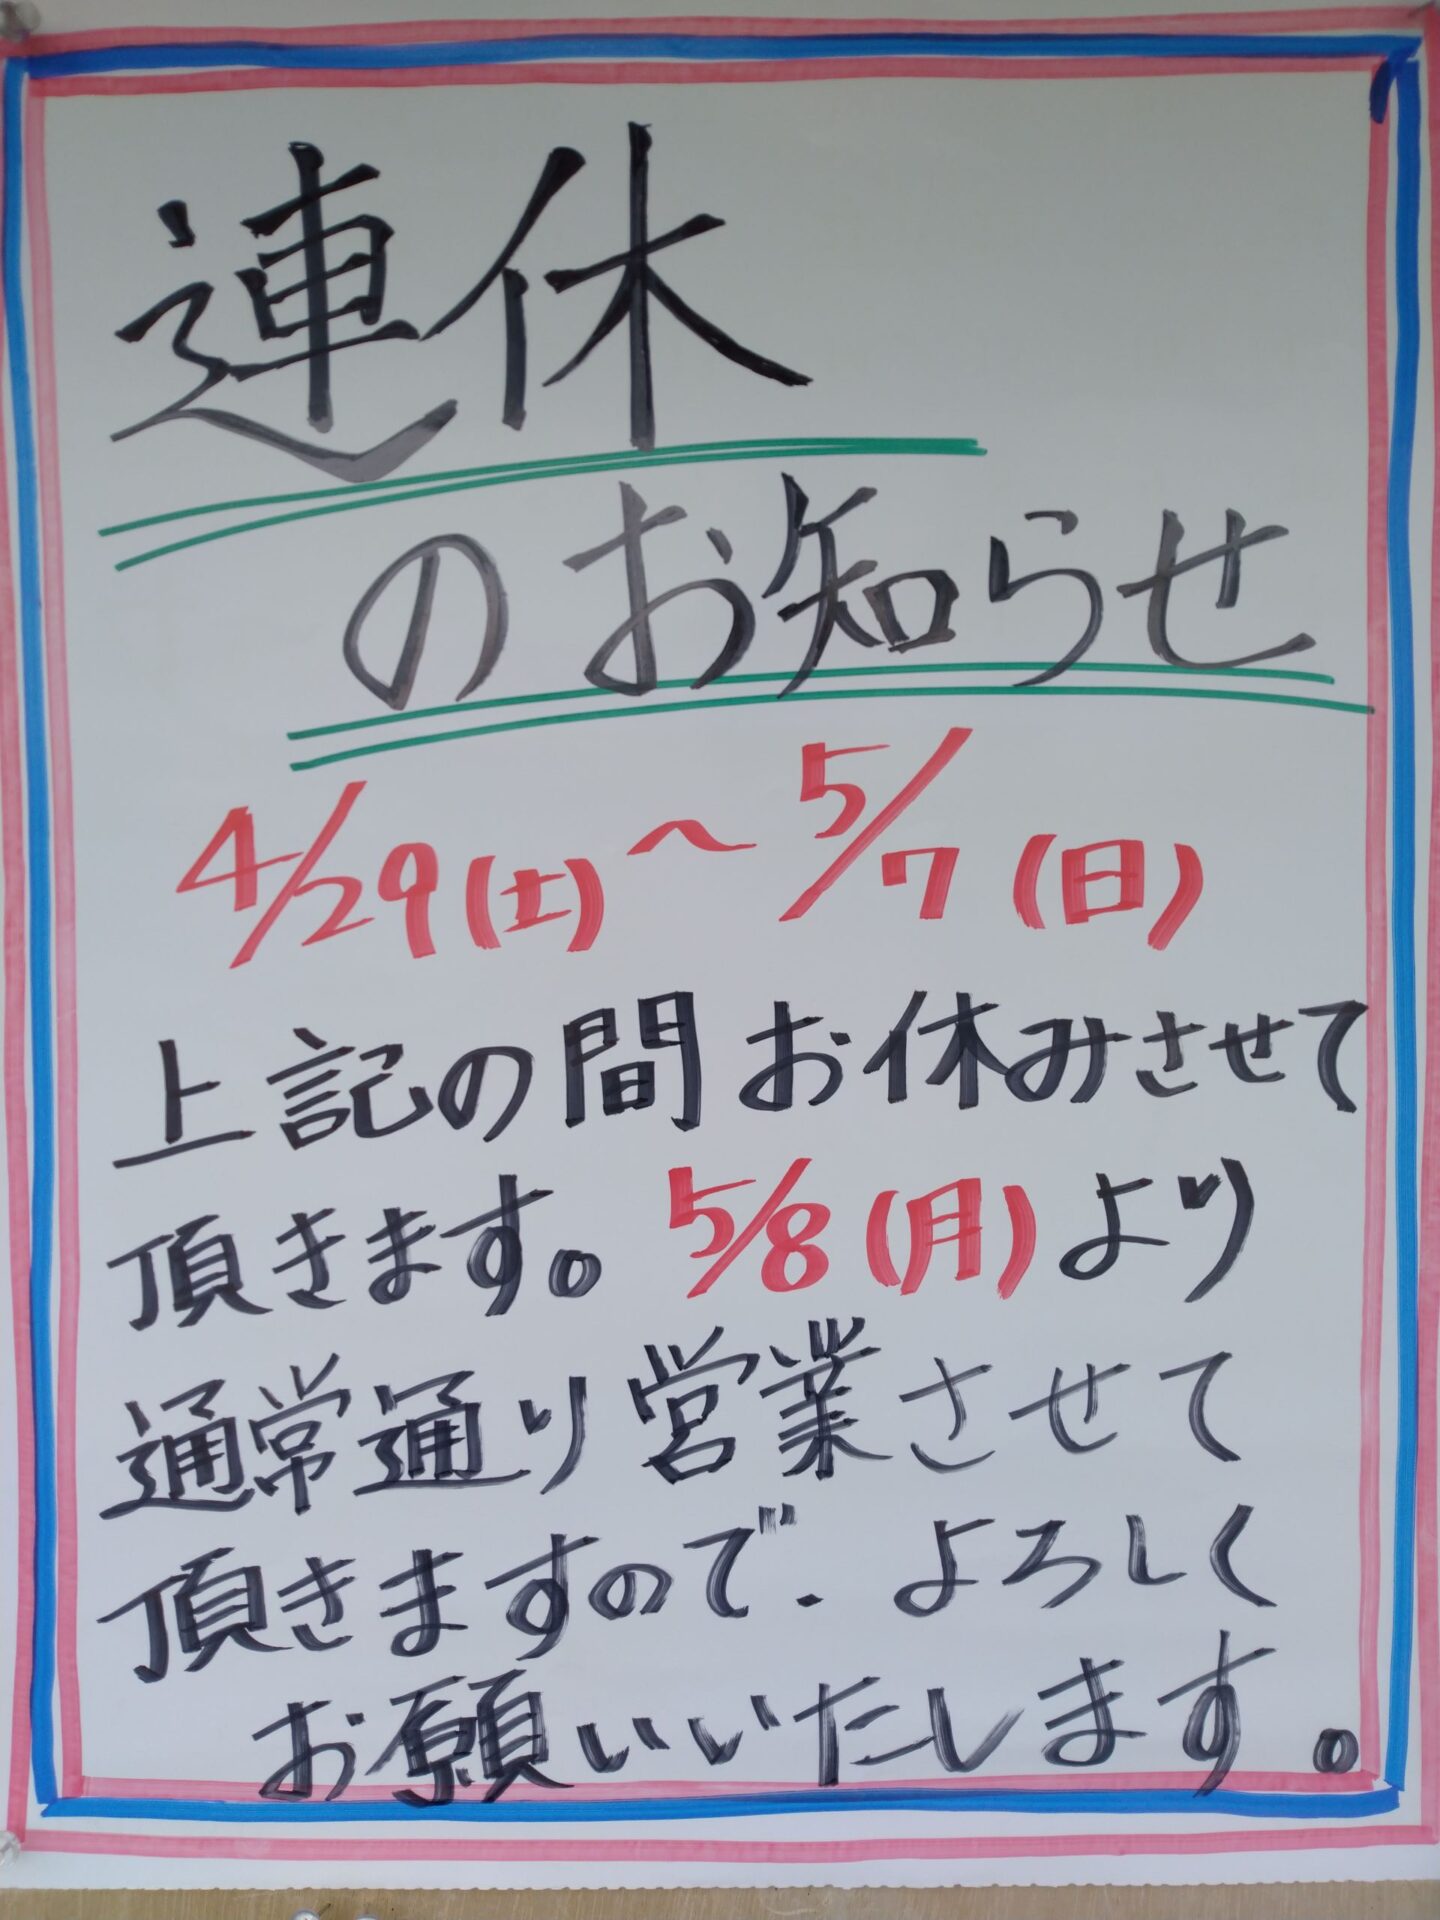 連休
のお知らせ
4/29(土)～5/7(日)
上記の間お休みさせて
頂きます。5/8(月)より
通常通り営業させて
頂きますので、よろしく
お願いいたします。